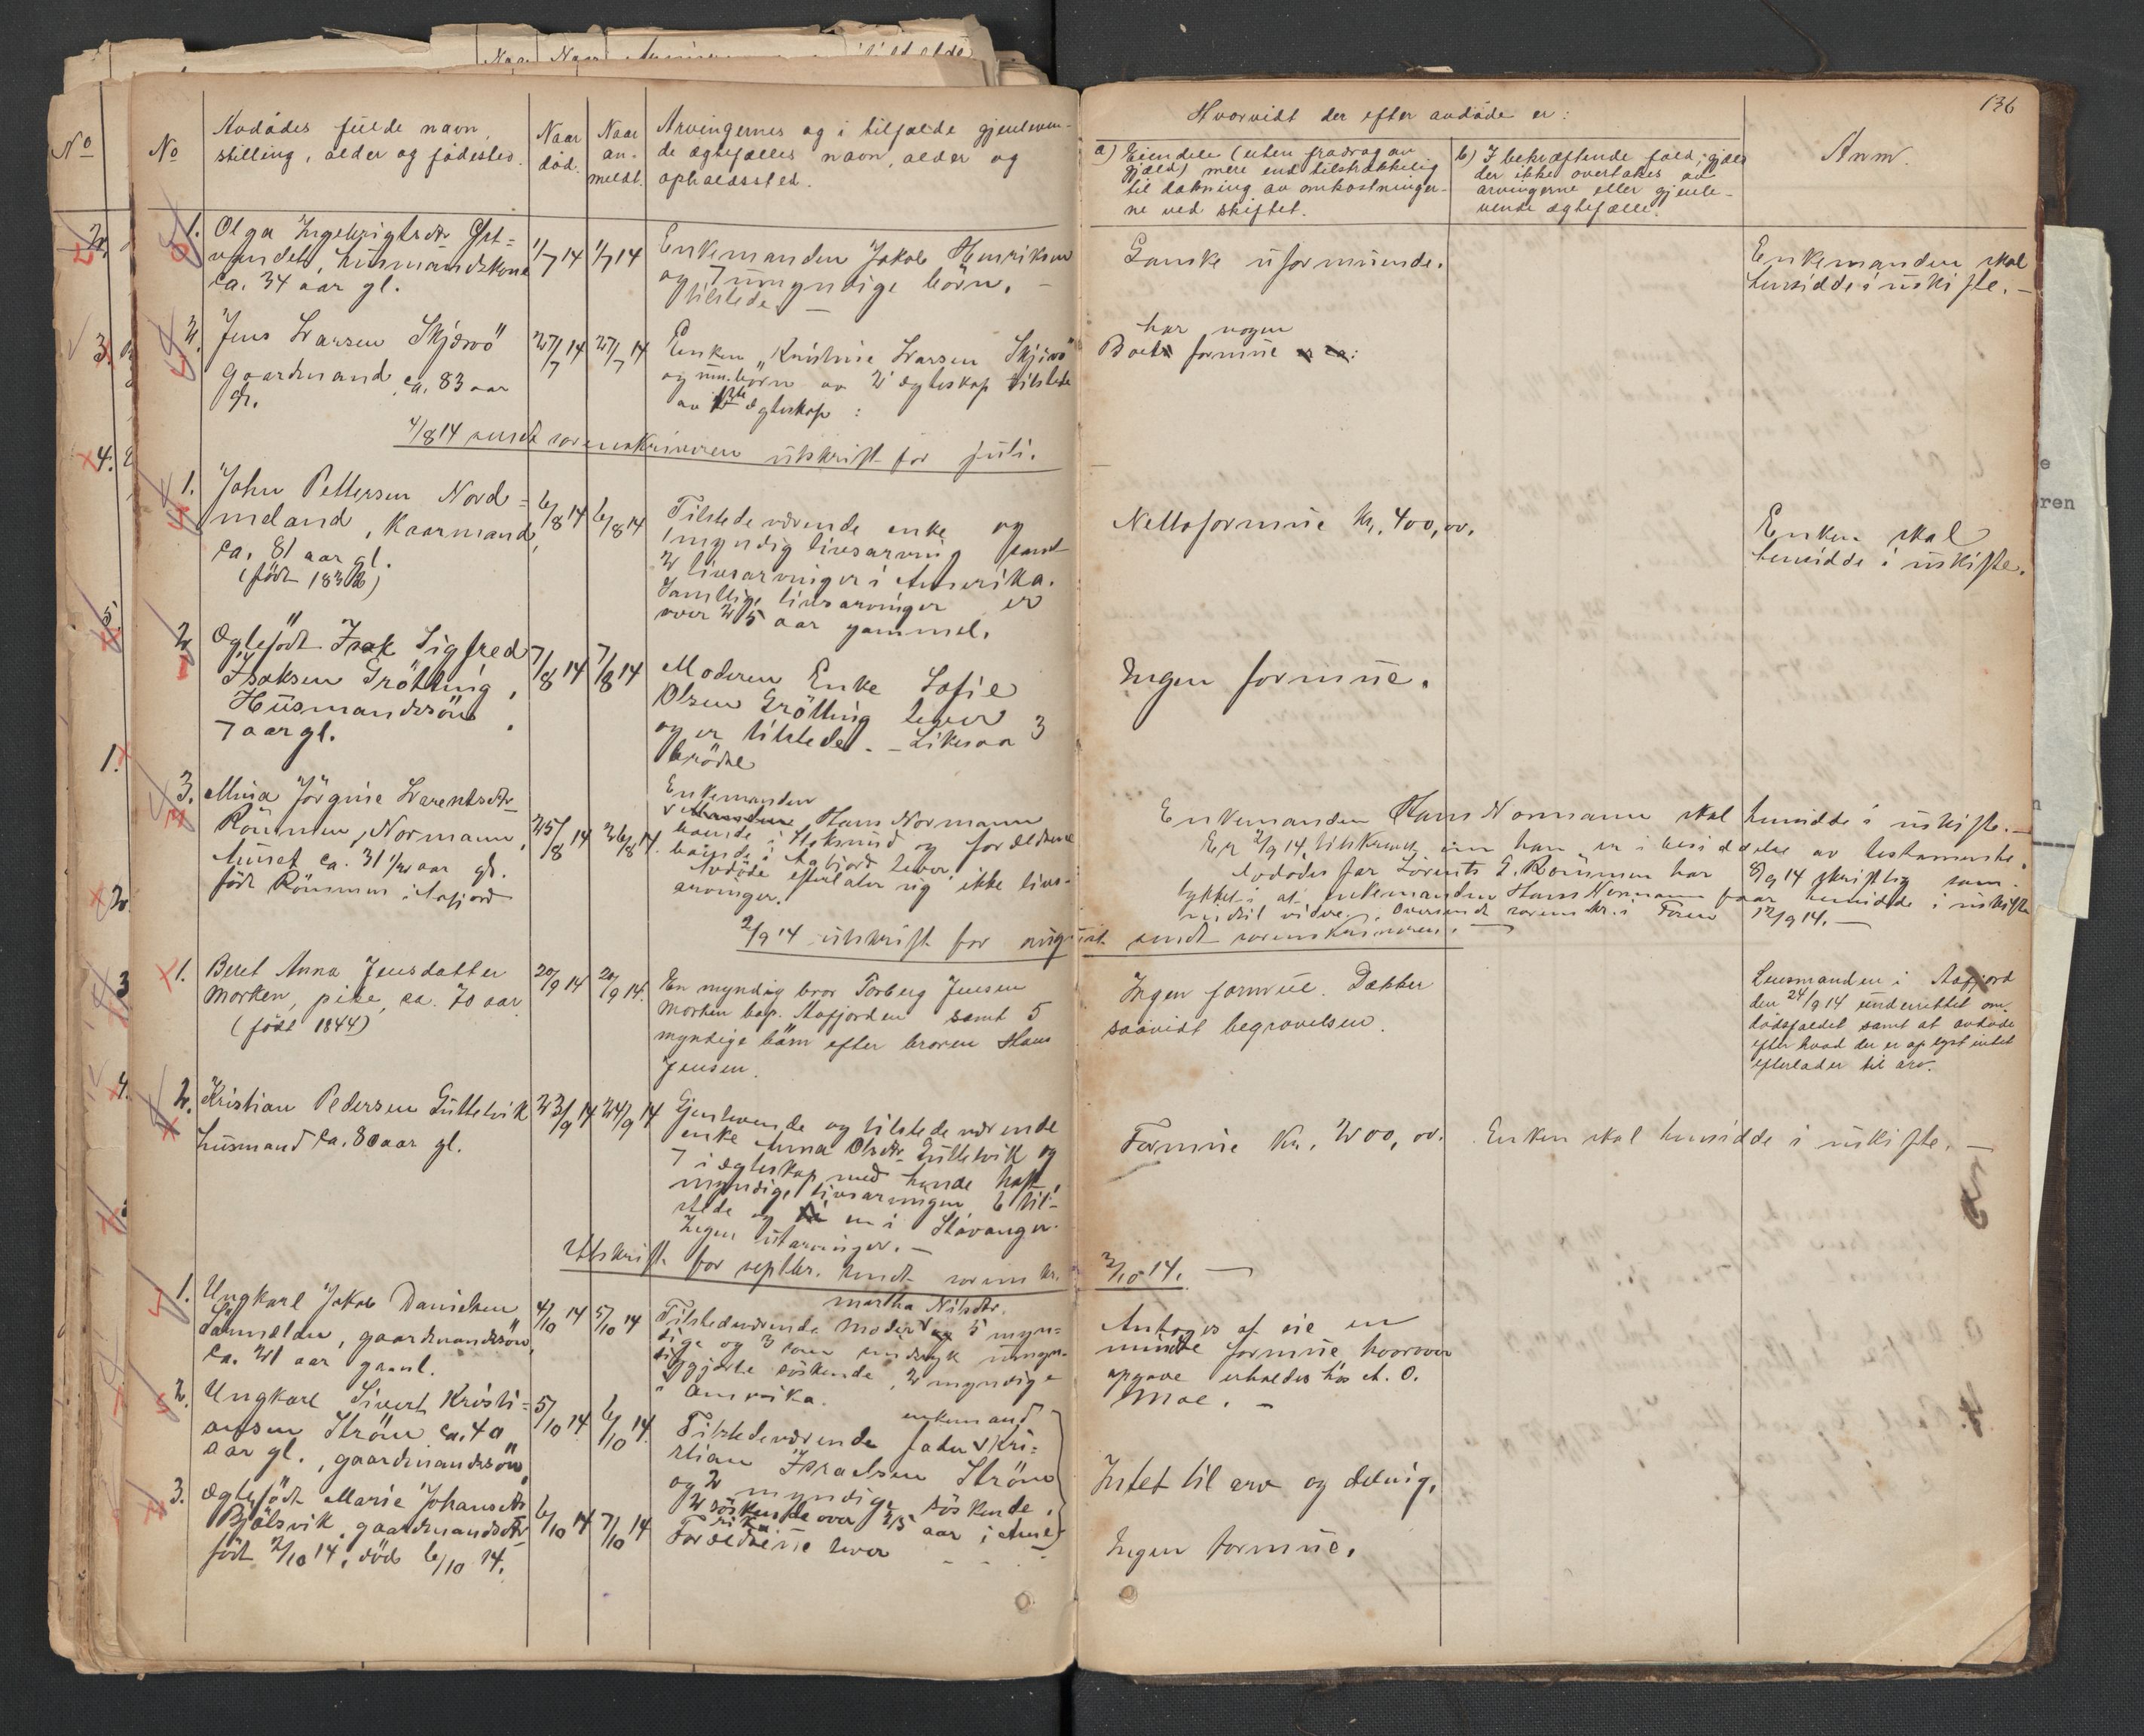 136
No
Avdødes fulde navn,
stilling, alder og fødested.
Naar
død.
Naar
an-
meldt.
Arvingernes og i tilfælde gjenleven-
de ægtefælles navn, alder og
opholdssted.
Hvorvidt der efter avdøde er:
a) Eiendele (uten fradrag av
gjæld) mere end tilstrækkelig
til dækning av omkostninger-
ne ved skiftet.
b) I bekræftende fald, gjæld
der ikke overtakes av
arvingerne eller gjenle-
vende ægtefælle.
Anm.
1.
Olga Ingebrigtsdtr
husmandskone
ca. 34 aar gl.
1/7 14
1/7 14
Enkemanden Jakob Henriksen
og 7 umyndige børn,
tilstede
Ganske uformuende.
Enkemanden skal
hensidde i uskifte. -
2.
Jens Larsen Skjærvö
Gaardmand, ca. 83 aar
gl.
27/7 14
27/7 14
Enken Kristine Larsen
og um. børn av 2 ægteskap tilstede
av ægteskap:
har nogen
Boet formue
4/8 14 sendt sorenskriveren utskrift for juli.
1.
John Pettersen Nord-
meland, Kaarmand,
ca. 81 aar gl.
(født 1832)
6/8 14
6/8 14
Tilstedeværende enke og
1 myndig livsarving samt
2 livsarvinger i Amerika.
Samtlige livsarvinger er
over 25 aar gammel.
Nettoformue kr. 400,00.
Enken skal
hensidde i uskifte.
2.
Ægtefødt Isak Sigfred
Isaksen Grötting,
Husmandssön
7 aar gl.
7/8 14
7/8 14
Moderen Enke Sofie
Olsen Grötting lever
og er tilstede. - Likesaa 3
brödre
Ingen formue.
3.
Mina Jörgine Larentsdtr
Römmen, Normann,
ca. 31 1/2 aar gl.
født Römmen i Aafjord
25/8 14
26/8 14.
Enkemanden
Hans Normann
boende i Stoksund og forældrene
boende i Aafjord lever.
Avdøde efterlater sig ikke livs-
arvinger.
Enkemanden Hans Normann skal hensidde i uskifte. -
Er 2/9 14 tilskrevet om han er i besiddelse av testamente.
Avdødes far Lorents E. Römmen har 8/9 14 skriftlig sam-
tykket i at enkemanden Hans Normann faar hensidde i uskifte
indtil videre. Oversendt sorenskr. i Fosen 12/9 14. -
2/9 14 utskrift for august sendt sorenskriveren.
1.
Beret Anna Jensdatter
Morken, pike, ca. 70 aar
(født 1844)
20/9 14
20/9 14.
En myndig bror Torberg Jensen
Morken bop. Aafjorden samt 5
myndige børn efter broren Hans
Jensen.
Ingen formue. Dækker
saavidt begravelsen.
Lensmanden i Aafjord
den 24/9 14 underrettet om
dødsfaldet samt at avdøde
efter hvad der er oplyst intet
efterlader til arv.
2.
Kristian Pedersen Guttelvik
husmand ca. 80 aar gl.
23/9 14
24/9 14
Gjenlevende og tilstedeværende
enke Anna Olsdtr Guttelvik og
7 i ægteskap med hende havt
myndige livsarvinger 6 til-
stede og en i Stavanger.
Ingen utarvinger. -
Formue kr. 200,00.
Enken skal hensidde i uskifte. -
Utskrift for septbr. sendt sorenskr.
2/10 14. -
1.
Ungkarl Jakob Danielsen
gaardmandssön,
ca. 21 aar gaml.
4/10 14
5/10 14
martha Nilsdtr.
Tilstedeværende Moder og 5 myn-
dige og 3 umyn-
dige søskende, 2 myndige
i Amerika.
Antages at eie en
mindre formue hvorover
opgave erholdes hos A. O.
Moe. -
2.
Ungkarl Sivert Kristi-
ansen Ström ca. 40
aar gl., gaardmandssön
5/10 14
6/10 14.
enkemand
Tilstedeværende fader Kri-
stian Israelsen Ström
og 2 myndige søskende,
2 søskende over 25 aar i Ame-
rika
Intet til arv og deling.
3.
Ægtefødt Marie Johansdtr
gaardmandsdtr
født 2/10 14, død 6/10 14.
6/10 14
7/10 14
Forældrene lever
Ingen formue.